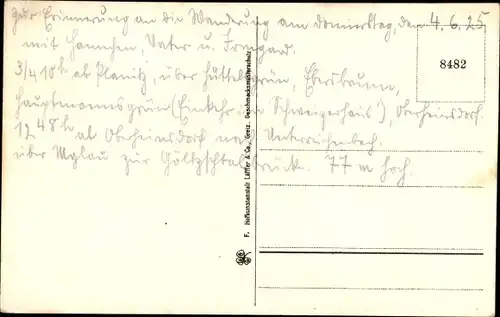 Zur Erinnerung an die Wanderung am Donnerstag, den 4.6.25
mit Hannchen, Vater u. Irmgard.
3/4 10 h ab Planitz, über Hüttelsgrün, Ebersbrunn,
Hauptmannsgrün (Einkehr im Schweizerhaus), Oberheinsdorf.
12 48 h ab Oberheinsdorf nach Unterreichenbach.
über Mylau zur Göltzschtalbrücke. 77 m hoch.
8482
F. Hofkunstanstalt Löffler & Co., Greiz. Geschmacksmusterschutz